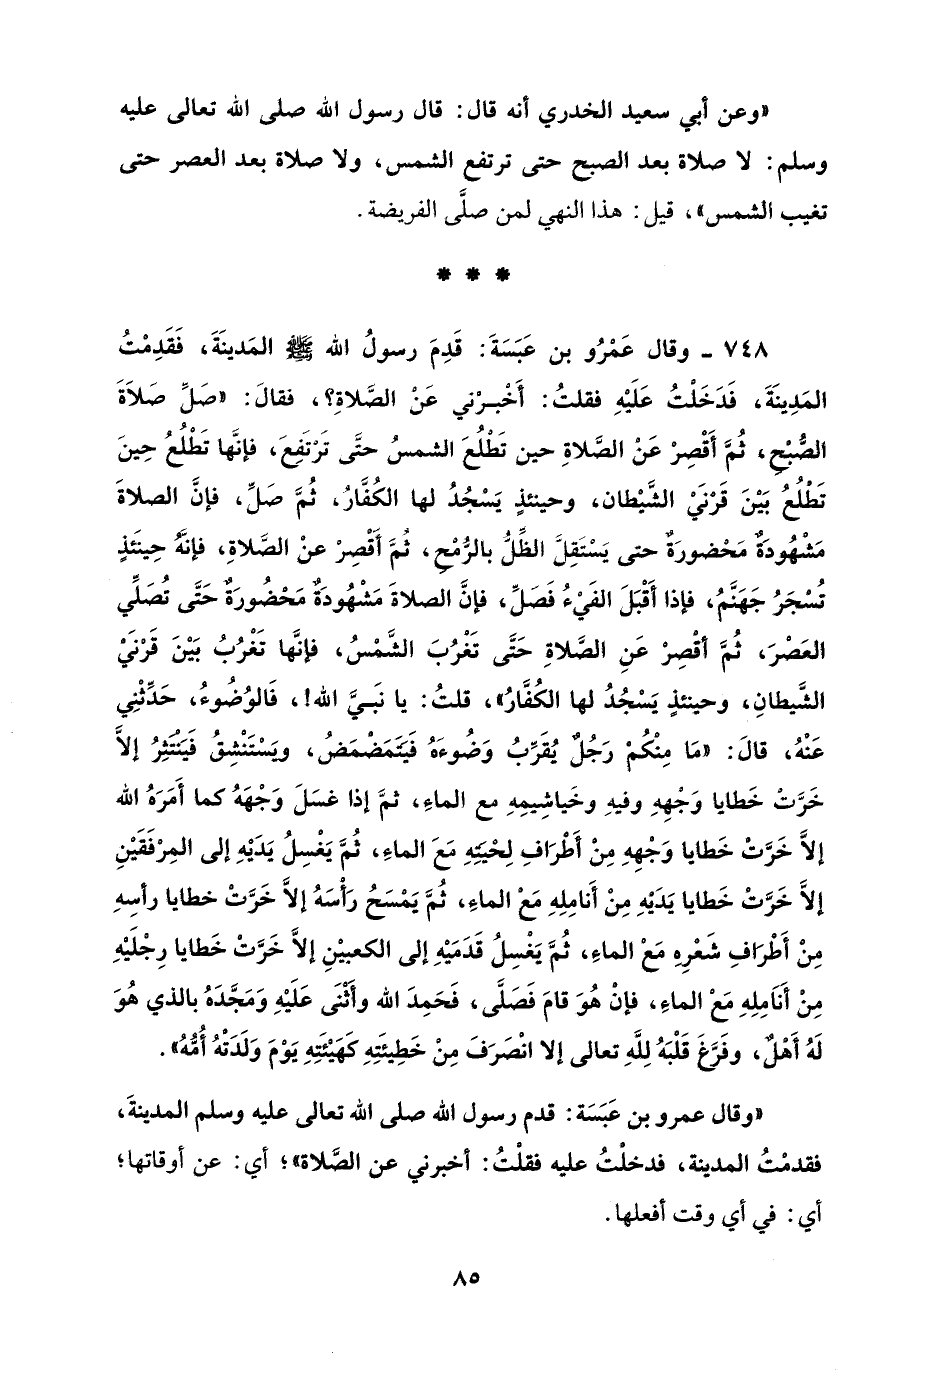 «وعن أبي سعيد الخدري أنه قال: قال رسول الله صلى الله تعالى عليه
وسلم: لا صلاة بعد الصبح حتى ترتفع الشمس، ولا صلاة بعد العصر حتى
تغيب الشمس»، قيل: هذا النهي لمن صلَّى الفريضة.
* * *
٧٤٨ - وقال عَمْرُو بن عَبَسَةَ: قَدِمَ رسولُ الله ﷺ المَدينَةَ، فَقَدِمْتُ
المَدِينَةَ، فَدَخَلْتُ عَلَيْهِ فقلتُ: أَخْبِرْني عَنْ الصَّلاةِ؟، فقالَ: «صَلِّ صَلاَةَ
الصُّبْحِ، ثُمَّ أَقْصِرْ عَنْ الصَّلاةِ حين تَطْلُعَ الشمسُ حتَّى تَرْتَفِعَ، فإنَّها تَطْلُعُ حِينَ
تَطْلُعُ بَيْنَ قَرْنَيْ الشَّيْطان، وحينئذٍ يَسْجُدُ لها الكُفَّارُ، ثُمَّ صَلِّ، فإنَّ الصلاةَ
مَشْهُودَةٌ مَحْضورَةٌ حتى يَسْتَقِلَ الظِّلُّ بالرُّمْحِ، ثُمَّ أَقْصِرْ عنْ الصَّلاةِ، فإنَّهُ حِينَئذٍ
تُسْجَرُ جَهَنَّمُ، فإذا أَقْبَلَ الفَيْءُ فَصَلِّ، فإنَّ الصلاةَ مَشْهُودَةٌ مَحْضُورَةٌ حَتَّى تُصَلِّي
العَصْرَ، ثُمَّ أقْصِرْ عَنِ الصَّلاةِ حَتَّى تَغْرُبَ الشَّمْسُ، فإنَّها تَغْرُبُ بَيْنَ قَرْنَيْ
الشَّيطانِ، وحينئذٍ يَسْجُدُ لها الكُفَّارُ»، قلتُ: يا نَبيَّ الله!، فَالوُضُوءُ، حَدِّثْنِي
عَنْهُ، قالَ: «مَا مِنْكُمْ رَجُلٌ يُقَرِّبُ وَضُوءَهُ فَيَتَمَضْمَضُ، ويَسْتَنْشِقُ فَيَنْتَثِرُ إلاَّ
خَرَّتْ خَطايا وَجْهِهِ وفيهِ وخَياشِيمِهِ مع الماءِ، ثمَّ إذا غسَلَ وَجْهَهُ كما أَمَرَهُ الله
إلاَّ خَرَّتْ خَطايا وَجْهِهِ مِنْ أَطْرَافِ لِحْيَتِهِ مَعَ الماءِ، ثُمَّ يَغْسِلُ يَدَيْهِ إلى المِرْفَقَيْنِ
إلاَّ خَرَّتْ خَطايا يَدَيْهِ مِنْ أَنامِلِهِ مَعْ الماءِ، ثُمَّ يَمْسَحُ رَأْسَهُ إلاَّ خَرَّتْ خطايا رأسِهِ
مِنْ أَطْرَافِ شَعْرِهِ مَعْ الماءِ، ثُمَّ يَغْسِلُ قَدَمَيْهِ إلى الكعبيْنِ إلاَّ خَرَّتْ خَطايا رِجْلَيْهِ
مِنْ أَنَامِلِهِ مَعْ الماءِ، فإنْ هُوَ قامَ فَصَلَّى، فَحَمِدَ الله وأَثْنَى عَلَيْهِ وَمَجَّدَهُ بالذي هُوَ
لَهُ أَهْلٌ، وفَرَّغَ قَلْبَهُ لِلَّهِ تعالى إلا انْصَرَفَ مِنْ خَطِيئَتِهِ كَهَيْئَتِهِ يَوْمَ وَلَدَتْهُ أُمُّهُ».
«وقال عمرو بن عَبَسَة: قدم رسول الله صلى الله تعالى عليه وسلم المدينةَ،
فقدمْتُ المدينة، فدخلْتُ عليه فقلْتُ: أخبرني عن الصَّلاة»؛ أي: عن أوقاتها؛
أي: في أي وقت أفعلها.
٨٥